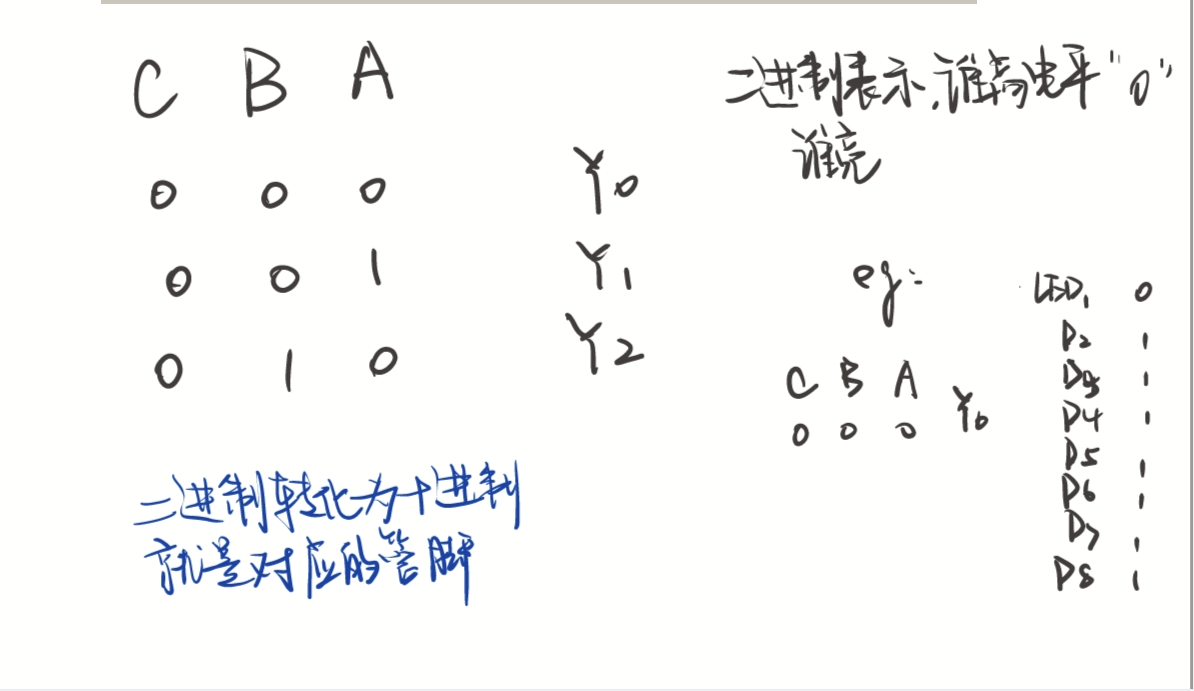 C B A
0 0 0 Y0
0 0 1 Y1
0 1 0 Y2
二进制转化为十进制
就是对应的管脚
二进制表示,谁高电平“0”
谁亮
eg:
C B A
0 0 0 Y0
LED1 0
D2 1
D3 1
D4 1
D5 1
D6 1
D7 1
D8 1